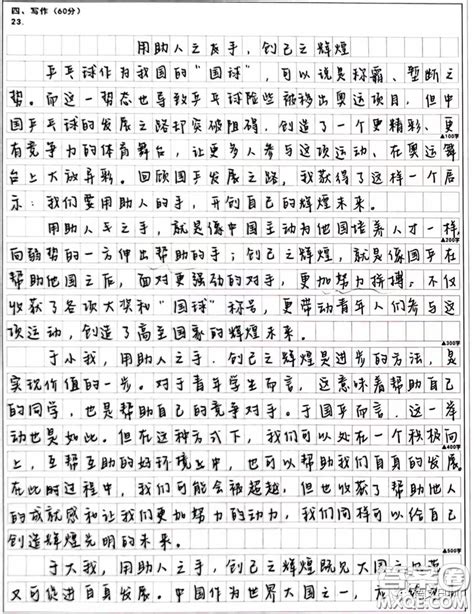 四、写作（60分）
23.
用助人之友手，创己之辉煌
乒乓球作为我国的“国球”，可以说是称霸、垄断之
势。而这一势态也导致乒乓球险些被移出奥运项目，但中
国乒乓球的发展之路却突破阻碍，创造了一个更精彩、更
有竞争力的体育舞台，让更多人参与这项运动、在奥运舞
台上大放异彩。回顾国乒发展之路，我获得了这样一个启
示：我们要用助人的手，开创自己的辉煌未来。
用助人之手，就是像中国主动为他国培养人才一样，
向弱势的一方伸出帮助的手；创己之辉煌，就是像国乒在
帮助他国之后，面对更强劲的对手，更加努力拼搏，不仅
收获了各项大奖和“国球”称号，更带动青年人们参与这
项运动，创造了高至国家的辉煌未来。
于小我，用助人之手，创己之辉煌是进步的方法，是
实现价值的一步。对于青年学生而言，这意味着帮助自己
的同学，也是帮助自己的竞争对手。于国乒而言，这一举
动也是如此。但在这种方式下，我们可以处在一个积极向
上，互帮互助的好环境上中，也可以帮助我们自身的发展
在此时过程中，我们可能会被超越，但也收获了帮助他人
的成就感和让我们更加努力的动力，我们同样可以给自己
创造辉煌光明的未来。
于大我，用助人之手，创己之辉煌既见大国之
又可促进自身发展。中国作为世界大国之一，
▲100字
▲200字
▲300字
▲400字
▲500字